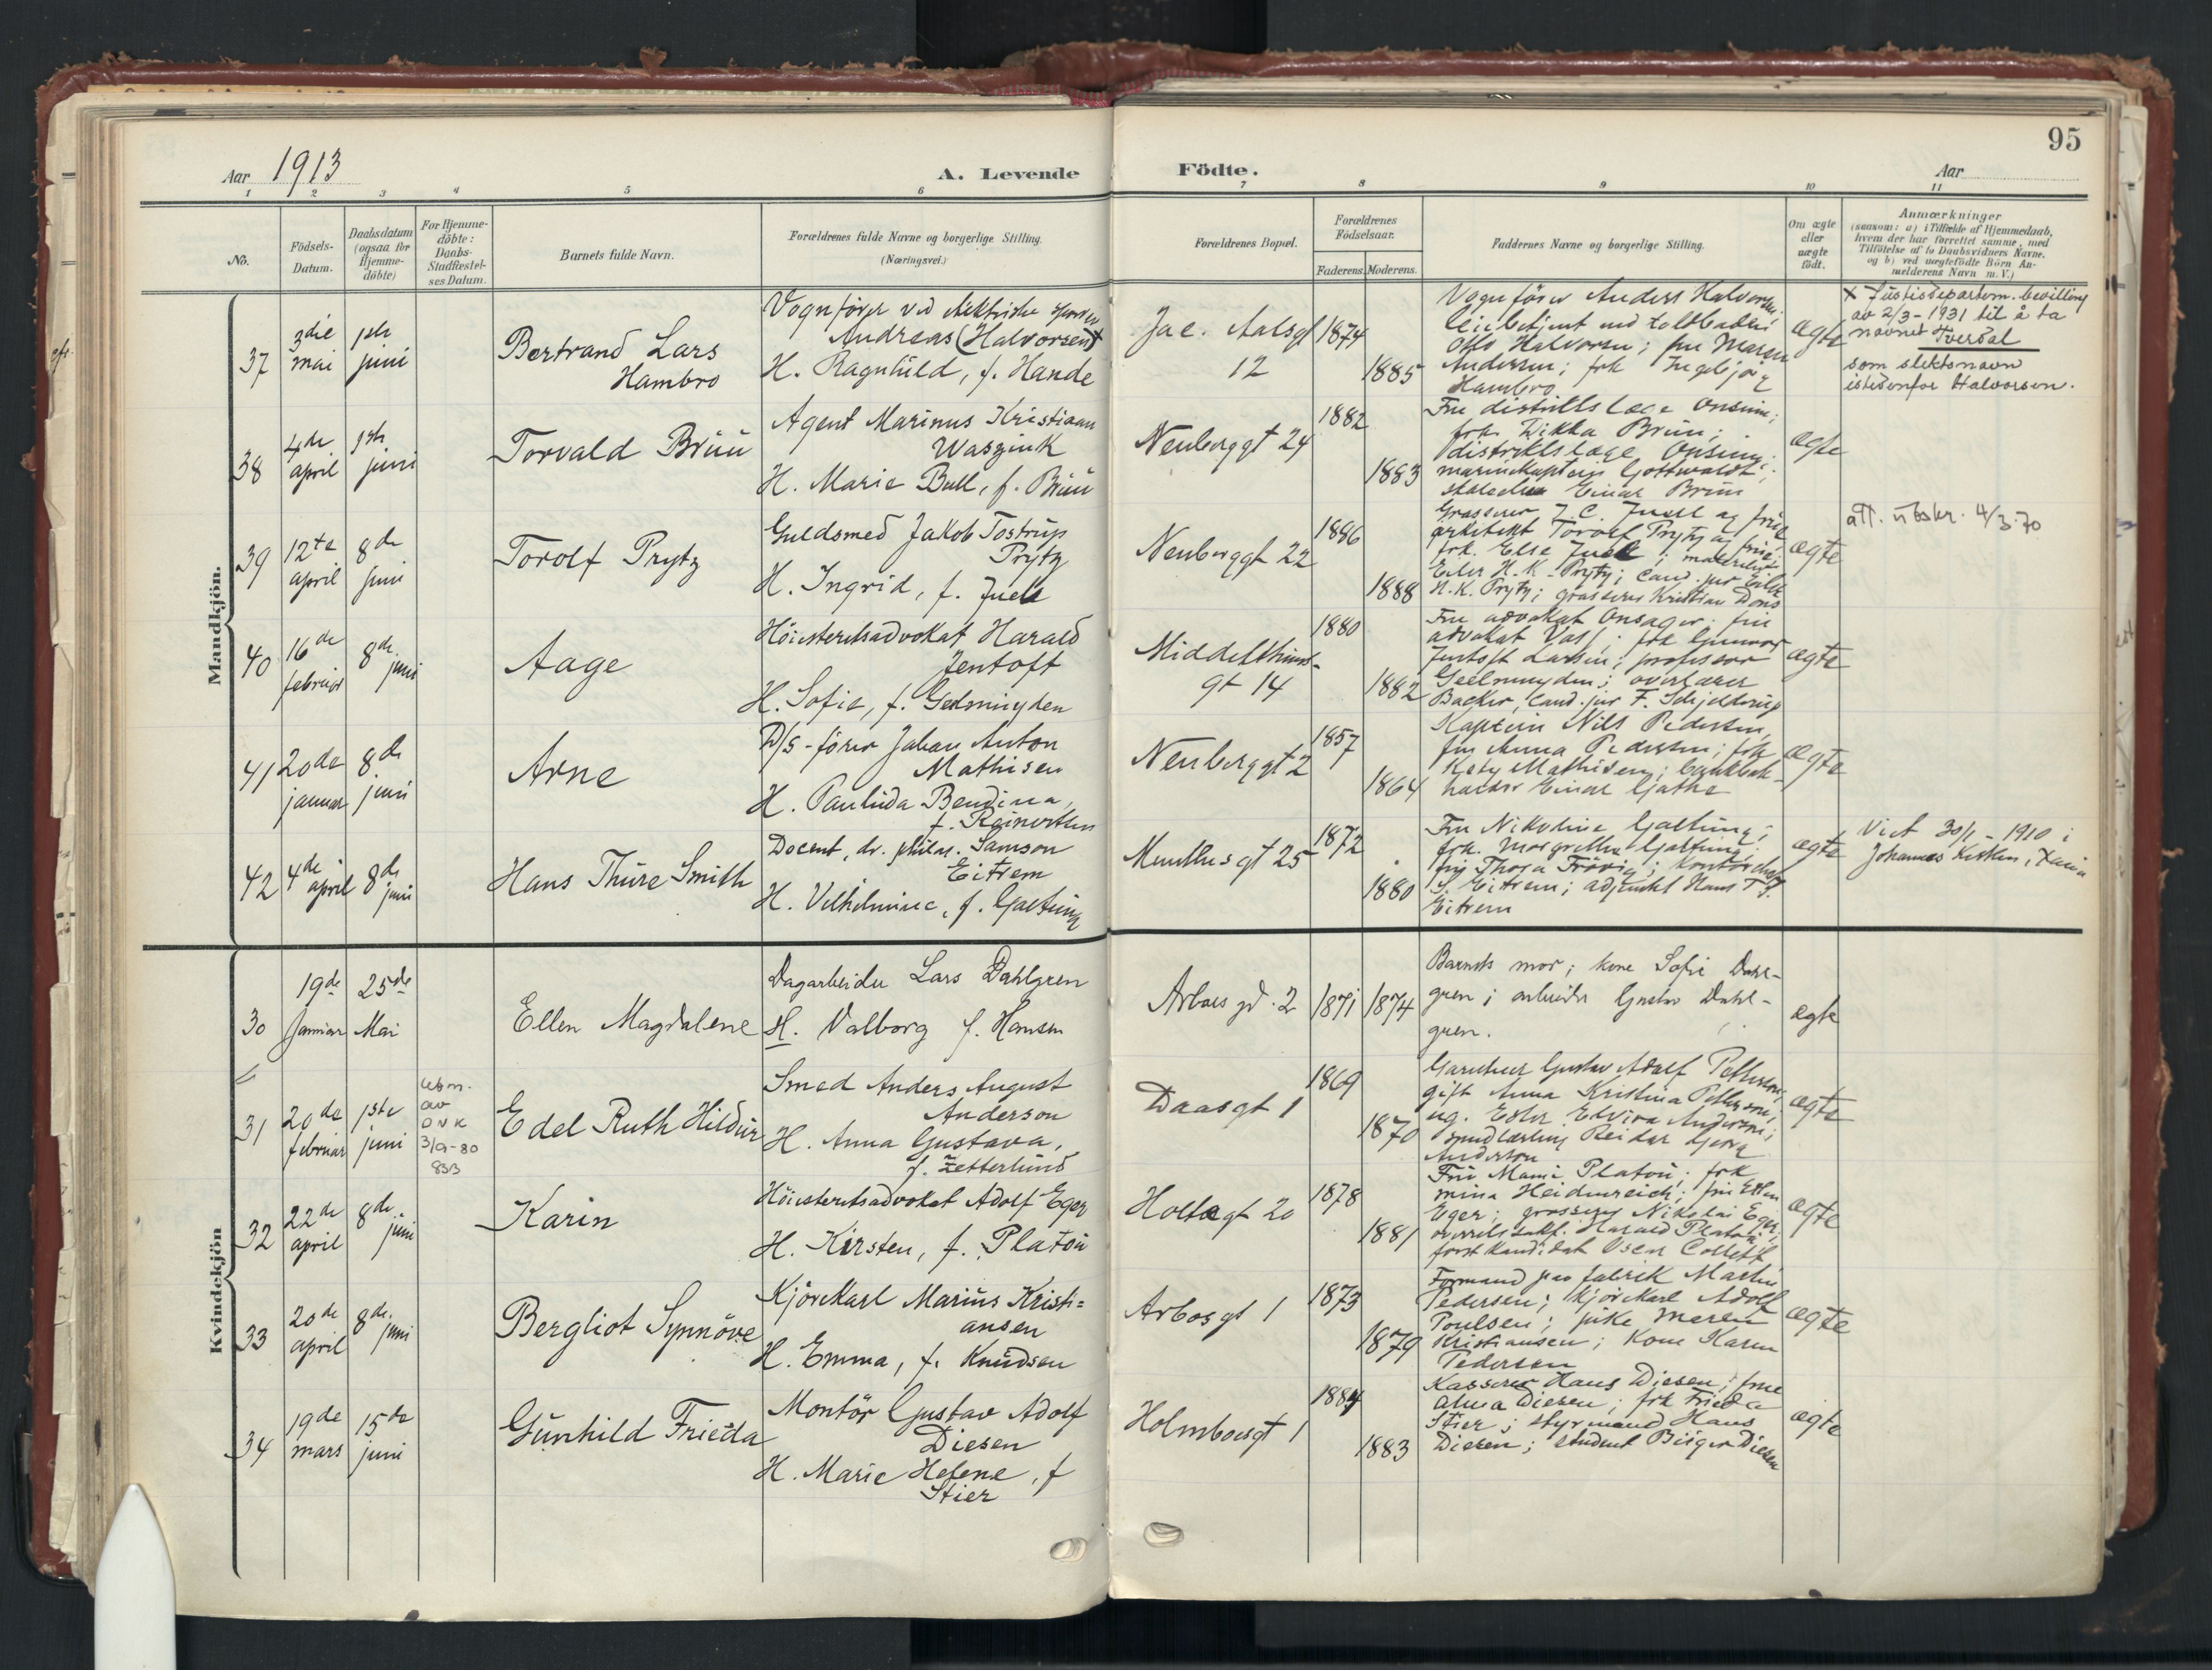 95
Aar 1913
A. Levende
Födte.
Aar
1 2 3 4 5 6 7 8 9 10 11
No.
Födsels-
Datum.
Daabsdatum
(ogsaa for
Hjemme-
döbte)
For Hjemme-
döbte:
Daabs-
Stadfæstel-
ses Datum.
Barnets fulde Navn.
Forældrenes fulde Navne og borgerlige Stilling.
(Næringsvei.)
Forældrenes Bopæl.
Forældrenes
Födselsaar.
Faderens.
Moderens.
Faddernes Navne og borgerlige Stilling.
Om ægte
eller
uægte
födt.
Anmærkninger
(saasom: a) i Tilfælde af Hjemmedaab,
hvem der har forrettet samme, med
Tilföielse af to Daabsvidners Navne.
og b) ved uægtefödte Börn An-
melderens Navn m. V.)
Mandkjön.
37
3die
mai
1ste
juni
Bertrand Lars
Hambro
Vognförer ved elektriske
Andreas (Halvorsen) x
H. Ragnhild, f. Hande
Jac. Aalsgt
12
1874
1885
Vognförer Anders Halvorsen;
Otto Halvorsen; fru Maren
Andersen; frk Ingebjörg
Hambro
ægte
x Justisdepartem. bevilling
av 2/3-1931 til å ta
navnet Tverdal
som slektsnavn
istedenfor Halvorsen.
38
4de
april
1ste
juni
Torvald Brun
Agent Marinus Kristiaan
Waszink
H. Marie Bull, f. Brun
Neuberggt 24
1882
1883
Fru distriktslæge Onsum;
frk. Dikka Brun;
distriktslæge Onsum;
marinekaptein Gottwaldt;
Einar Brun
ægte
39
12te
april
8de
juni
Torolf Prytz
Guldsmed Jakob Tostrup
Prytz
H. Ingrid, f. Juell
Neuberggt 22
1886
1888
Grosserer J. C. Juell og frue
arkitekt Torolf Prytz og frue;
frk. Else Juell;
Eiler H. K. Prytz; cand. jur Eiler
H. K. Prytz; grosserer Kristian Dons
ægte
att. utskr. 4/3.70
40
16de
februar
8de
juni
Aage
Höiesteretsadvokat Harald
Jentoft
H. Sofie, f. Geelmuyden
Middelthuns-
gt 14
1880
1882
Fru advokat Onsager; fru
advokat Vass; frk Gunvor
Jentoft Larsen; professor
Geelmuyden; overlærer
Backer, cand. jur F. Schjelderup
ægte
41
20de
januar
8de
juni
Arne
D/S-förer Johan Anton
Mathisen
H. Paulida Bendina,
f. Reinertsen
Neuberggt 2
1857
1864
Kaptein Nils Pedersen,
fru Anna Pedersen; frk
Katy Mathisen; bankbok-
holder Einar Gjathe
ægte
42
4de
april
8de
juni
Hans Thure Smith
Docent, dr. philos. Samson
Eitrem
H. Vilhelmine, f. Galtung
Munthesgt 25
1872
1880
Fru Nikoline Galtung;
frk. Margrethe Galtung;
fru Thora Trövig; kontorchef
S. Eitrem; adjunkt Hans T. J.
Eitrem
ægte
Viet 30/1 - 1910 i
Johannes Kirken, Xania
Kvindekjön
30
19de
Januar
25de
Mai
Ellen Magdalene
Dagarbeider Lars Dahlgren
H. Valborg f. Hansen
Arbosgt. 2
1871
1874
Barnets mor; kone Sofie Dahl-
gren; arbeider Gustav Dahl-
gren.
ægte
31
20de
februar
1ste
juni
Utm.
av
DNK
3/9-80
Edel Ruth Hildur
Smed Anders August
Anderson
H. Anna Gustava,
f. Zetterlund
Daasgt 1
1869
1870
Garntner Gustav Adolf Petterson;
gift Anna Kristina Petterson;
ug. Ester Elvira Anderson;
smedlærling Reidar Georg
Anderson
ægte
32
22de
april
8de
juni
Karin
Höiesteretsadvokat Adolf Eger
H. Kirsten, f. Platou
Holtegt 20
1878
1881
Fru Mami Platou; frk
mina Heidenreich; fru Ellen
Eger; grosserer Nikolai Eger;
overretssakf. Harald Platou;
forstkandidat Oscar Collett
ægte
33
20de
april
8de
juni
Bergliot Synnöve
Kjörekarl Marius Kristi=
ansen
H. Emma, f. Knudsen
Arbosgt 1
1873
1879
Formand paa fabrik Martin
Pedersen; kjörekarl Adolf
Poulsen; pike Maren
Kristiansen; kone Karen
Pedersen
ægte
34
19de
mars
15de
juni
Gunhild Frieda
Montör Gustav Adolf
Diesen
H. Marie Helene, f
Stier
Holmboesgt 1
1884
1883
Kasserer Hans Diesen; frue
Alma Diesen; frk Frieda
Stier; styrmand Hans
Diesen; student Birger Diesen
ægte